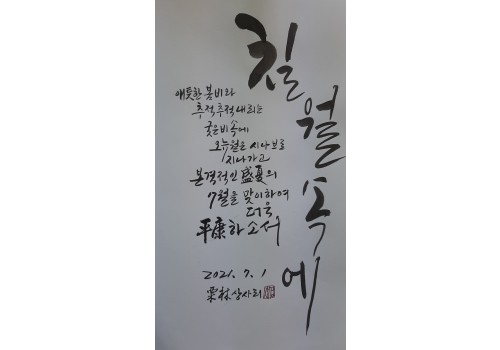 칠월 속에
애틋한 봄비와
추적추적 내리는
궂은비 속에
오뉴월은 시나브로
지나가고
본격적인 盛夏의
7월을 맞이하여
더욱
平康하소서
2021. 7. 1
상사리